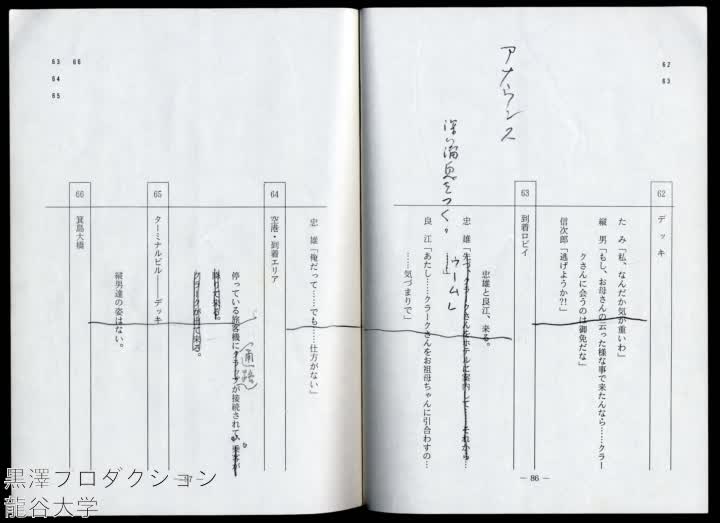 62
63
アナウンス
62
デッキ
たみ「私、なんだか気が重いわ」
縦男「もし、お母さんの云った様な事で来たんなら……クラー
クさんに会うのは御免だな」
信次郎「逃げようか?!」
63
到着ロビイ
忠雄と良江、来る。
忠雄「先づ、クラークさんをホテルに案内して……それから…
……」
ウーム」
深い溜息をつく。
良江「あたし……クラークさんをお祖母ちゃんに引合わすの…
……気づまりで」
— 86 —
63 66
64
65
忠雄「俺だって……でも……仕方がない」
64
空港・到着エリア
停っている旅客機にタラップが接続されて、乗客が
通路
降りて来る。
クラークが出て来る。
65
ターミナルビル——デッキ
縦男達の姿はない。
66
箕島大橋
黒澤プロダクション
龍谷大学